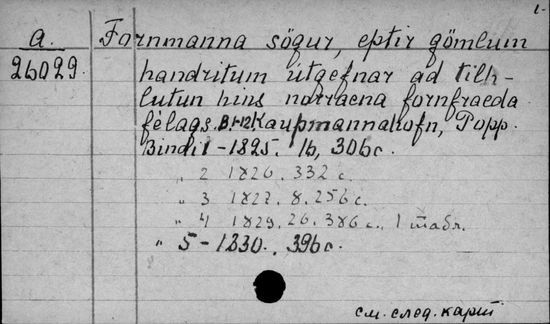 1-
a. Fornmanna sögur, eptir gömlum
26029. handritum útgefnar ad tilh-
lutun hins norraena fornfraeda
félags. B.1-12. Kaupmannahofn, Popp.
Bindi 1-1825. 16, 306 c.
„ 2 1826. 332 c.
„ 3 1827. 8. 256 c.
„ 4 1829. 26. 386 c., 1 табл.
„ 5-1830. 396 c.
см. след. карт